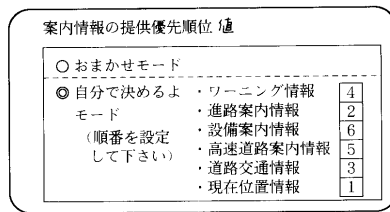 案内情報の提供優先順位値
○おまかせモード
◎自分で決めるよ
モード
(順番を設定
して下さい)
・ワーニング情報 4
・進路案内情報 2
・設備案内情報 6
・高速道路案内情報 5
・道路交通情報 3
・現在位置情報 1